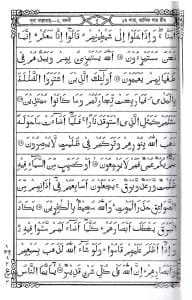 ১ম পারা, আলিফ লাম মীম
اٰمَنَّا ۖ وَاِذَا خَلَوْا اِلٰى شَيٰطِيْنِهِمْ ۙ قَالُوْٓا اِنَّا مَعَكُمْ ۙ اِنَّمَا
نَحْنُ مُسْتَهْزِءُوْنَ ۝ اَللّٰهُ يَسْتَهْزِئُ بِهِمْ وَيَمُدُّهُمْ فِيْ
طُغْيَانِهِمْ يَعْمَهُوْنَ ۝ اُولٰٓئِكَ الَّذِيْنَ اشْتَرَوُا الضَّلٰلَةَ
بِالْهُدٰى فَمَا رَبِحَتْ تِّجَارَتُهُمْ وَمَا كَانُوْا مُهْتَدِيْنَ ۝
مَثَلُهُمْ كَمَثَلِ الَّذِي اسْتَوْقَدَ نَارًا ۚ فَلَمَّآ اَضَآءَتْ مَا حَوْلَهٗ
ذَهَبَ اللّٰهُ بِنُوْرِهِمْ وَتَرَكَهُمْ فِيْ ظُلُمٰتٍ لَّا يُبْصِرُوْنَ ۝
صُمٌّۢ بُكْمٌ عُمْيٌ فَهُمْ لَا يَرْجِعُوْنَ ۝ اَوْ كَصَيِّبٍ مِّنَ السَّمَآءِ
فِيْهِ ظُلُمٰتٌ وَّرَعْدٌ وَّبَرْقٌ ۚ يَجْعَلُوْنَ اَصَابِعَهُمْ فِيْٓ اٰذَانِهِمْ مِّنَ
الصَّوَاعِقِ حَذَرَ الْمَوْتِ ؕ وَاللّٰهُ مُحِيْطٌۢ بِالْكٰفِرِيْنَ ۝ يَكَادُ
الْبَرْقُ يَخْطَفُ اَبْصَارَهُمْ ؕ كُلَّمَآ اَضَآءَ لَهُمْ مَّشَوْا فِيْهِ
وَاِذَآ اَظْلَمَ عَلَيْهِمْ قَامُوْا ؕ وَلَوْ شَآءَ اللّٰهُ لَذَهَبَ بِسَمْعِهِمْ
وَاَبْصَارِهِمْ ؕ اِنَّ اللّٰهَ عَلٰى كُلِّ شَيْءٍ قَدِيْرٌ ۝ يٰٓاَيُّهَا النَّاسُ